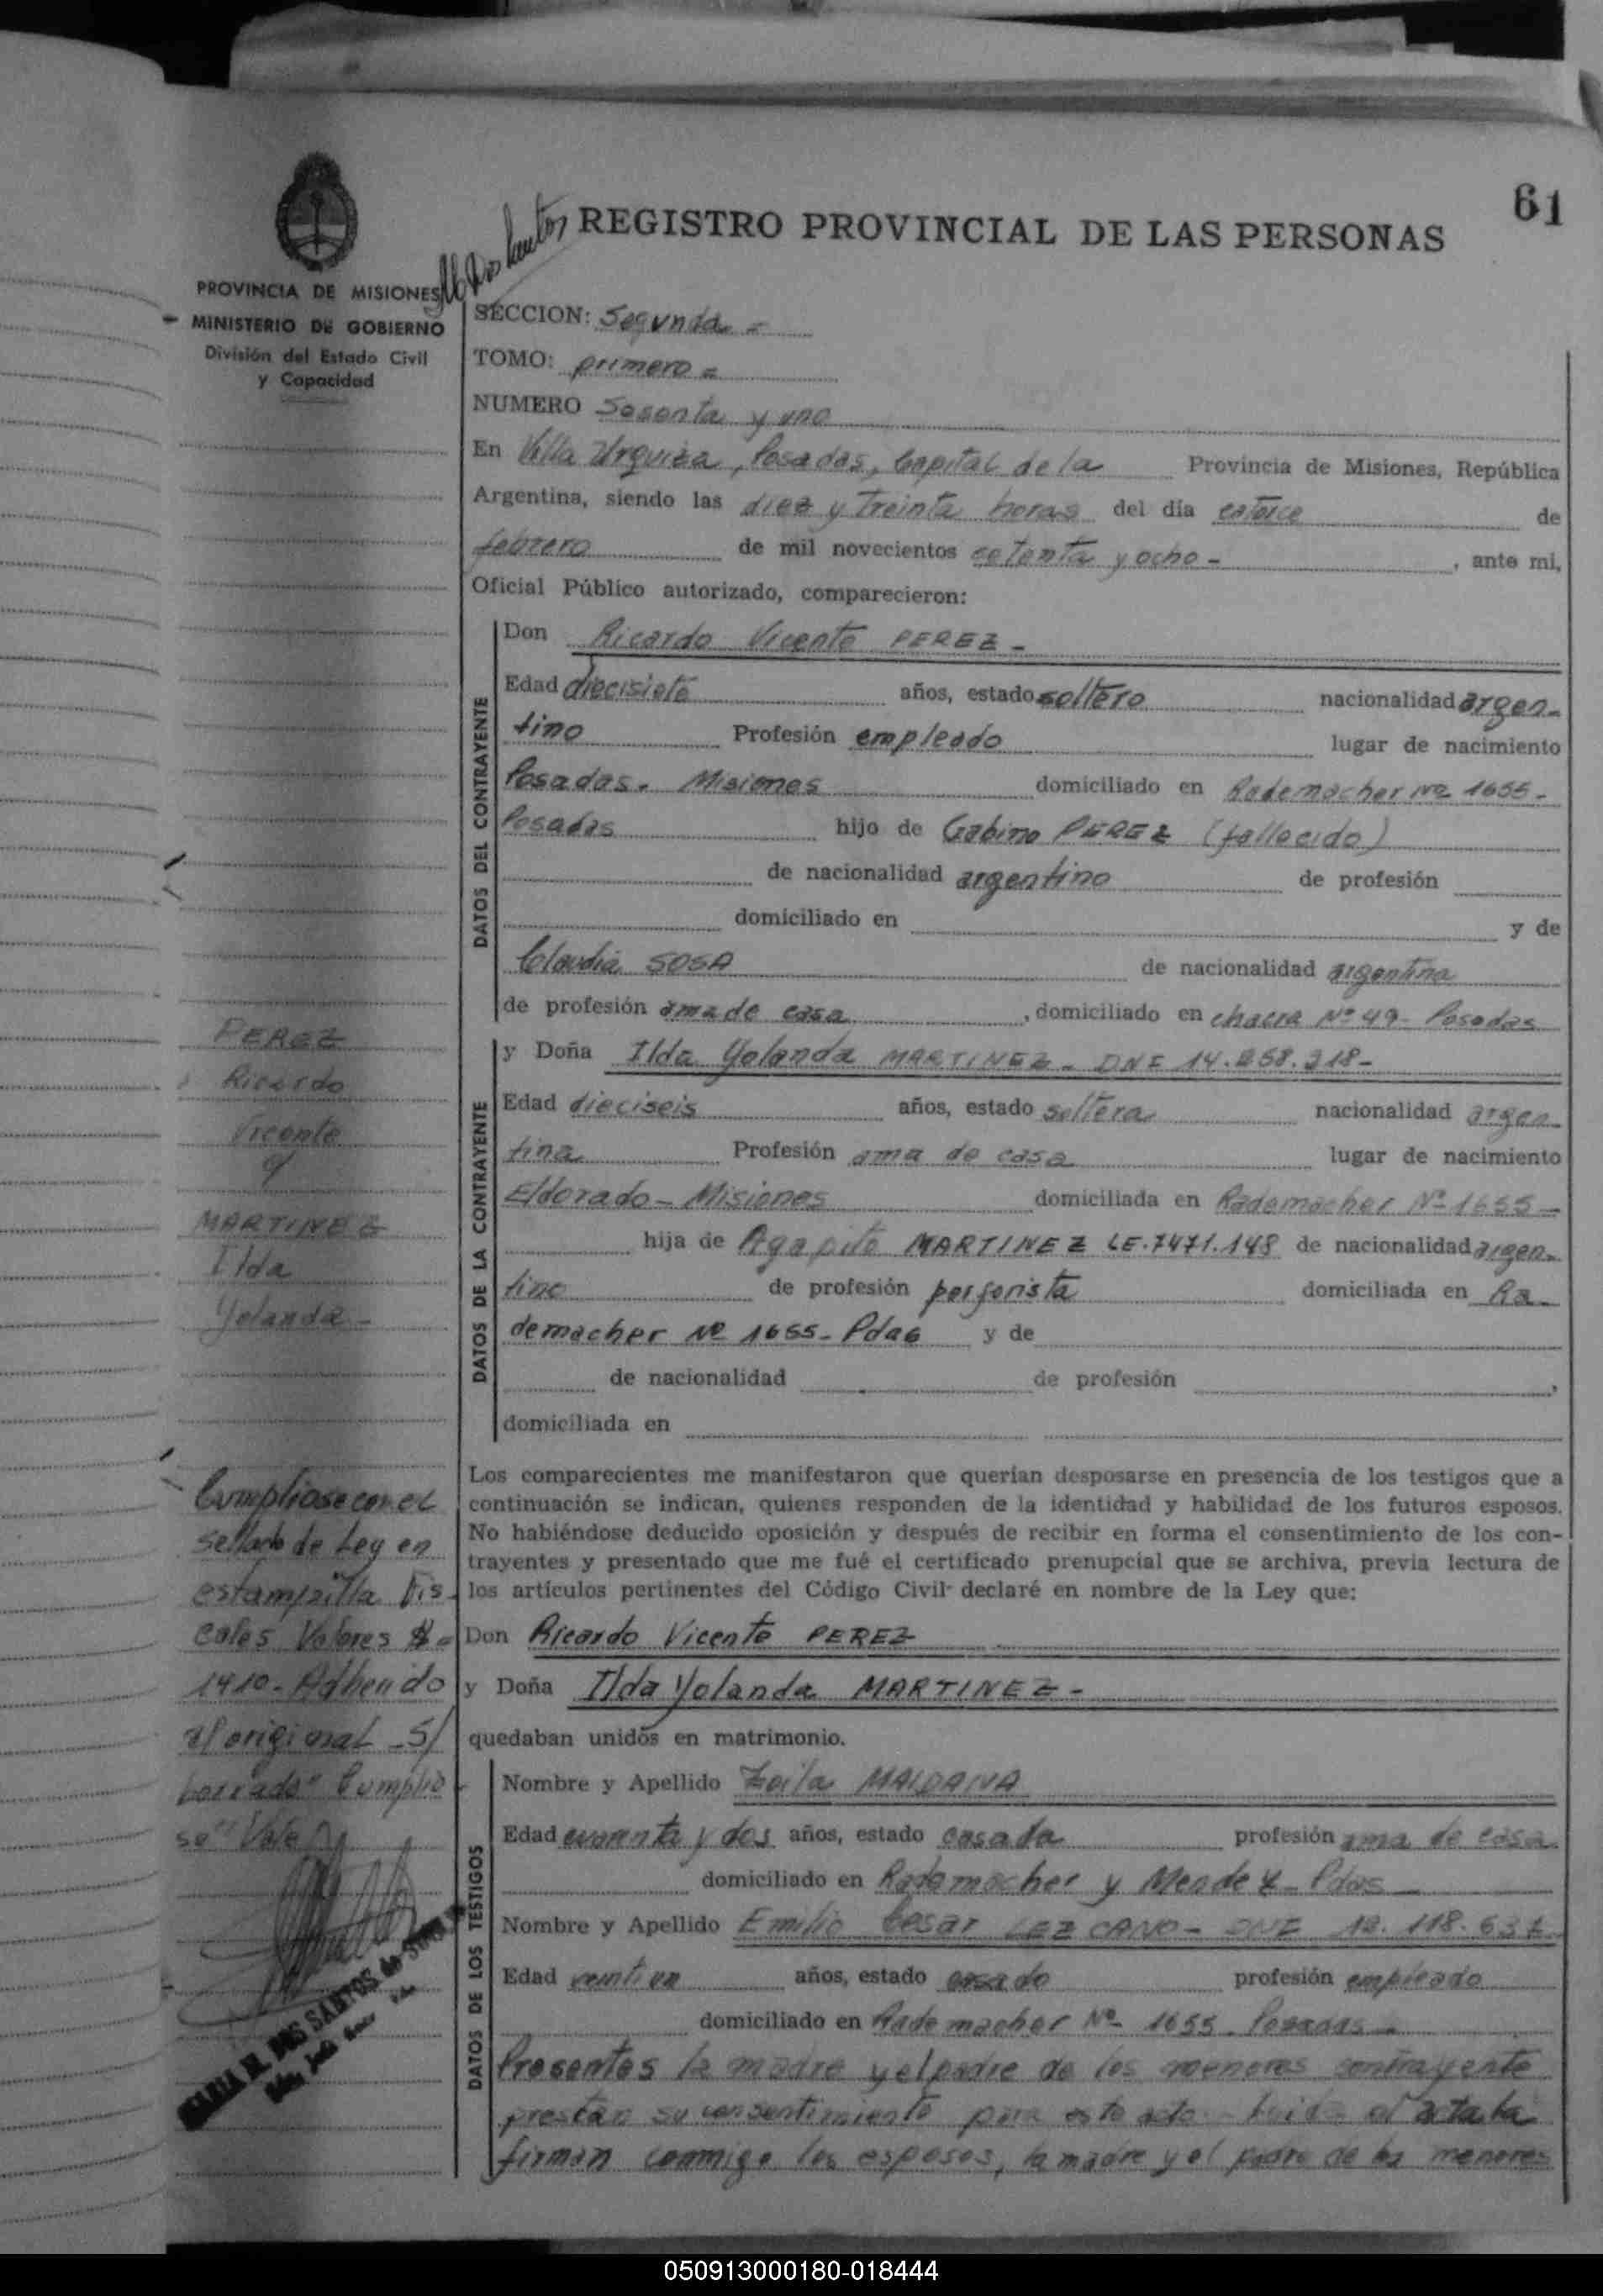 61
REGISTRO PROVINCIAL DE LAS PERSONAS
PROVINCIA DE MISIONES
MINISTERIO DE GOBIERNO
División del Estado Civil
y Capacidad
SECCION: Segunda =
TOMO: primero =
NUMERO Sesenta y uno
En Villa Urquiza, Posadas, Capital de la Provincia de Misiones, República
Argentina, siendo las diez y treinta horas del día catorce de
febrero de mil novecientos setenta y ocho - , ante mi,
Oficial Público autorizado, comparecieron:
DATOS DEL CONTRAYENTE
Don Ricardo Vicente PEREZ -
Edad diecisiete años, estado soltero nacionalidad argen-
tino Profesión empleado lugar de nacimiento
Posadas. Misiones domiciliado en Rademacher Nº 1655-
Posadas hijo de Gabino PEREZ (fallecido)
de nacionalidad argentino de profesión
domiciliado en y de
Claudia SOSA de nacionalidad argentina
de profesión ama de casa , domiciliado en chacra Nº 49- Posadas
DATOS DE LA CONTRAYENTE
y Doña Ilda Yolanda MARTINEZ - DNI 14.258.218-
Edad dieciseis años, estado soltera nacionalidad argen-
tina Profesión ama de casa lugar de nacimiento
Eldorado - Misiones domiciliada en Rademacher Nº 1655-
hija de Agapito MARTINEZ LE.7471.148 de nacionalidad argen-
tino de profesión perforista domiciliada en Ra-
demacher Nº 1655- Pdas y de
de nacionalidad de profesión ,
domiciliada en
Los comparecientes me manifestaron que querían desposarse en presencia de los testigos que a
continuación se indican, quienes responden de la identidad y habilidad de los futuros esposos.
No habiéndose deducido oposición y después de recibir en forma el consentimiento de los con-
trayentes y presentado que me fué el certificado prenupcial que se archiva, previa lectura de
los artículos pertinentes del Código Civil declaré en nombre de la Ley que:
Don Ricardo Vicente PEREZ
y Doña Ilda Yolanda MARTINEZ -
quedaban unidos en matrimonio.
DATOS DE LOS TESTIGOS
Nombre y Apellido Zoila MALDANA
Edad cuarenta y dos años, estado casada profesión ama de casa
domiciliado en Rademacher y Mendez - Pdas
Nombre y Apellido Emilio Cesar LEZCANO - DNI 12.118.637
Edad años, estado casado profesión empleado
domiciliado en Rademacher Nº 1655. Posadas -
Presentes la madre y el padre de los menores contrayente
prestan su consentimiento para este acto - el acta la
firman conmigo los esposos, la madre y el padre de los menores
PEREZ
Ricardo
Vicente
y
MARTINEZ
Ilda
Yolanda -
Cumpliose con el
sellado de Ley en
estampilla Fis-
cales Valores $ =
1410- Adherido
al original - S/
borrado" Cumplio
se" Vale
MARIA M. DOS SANTOS de
050913000180-018444